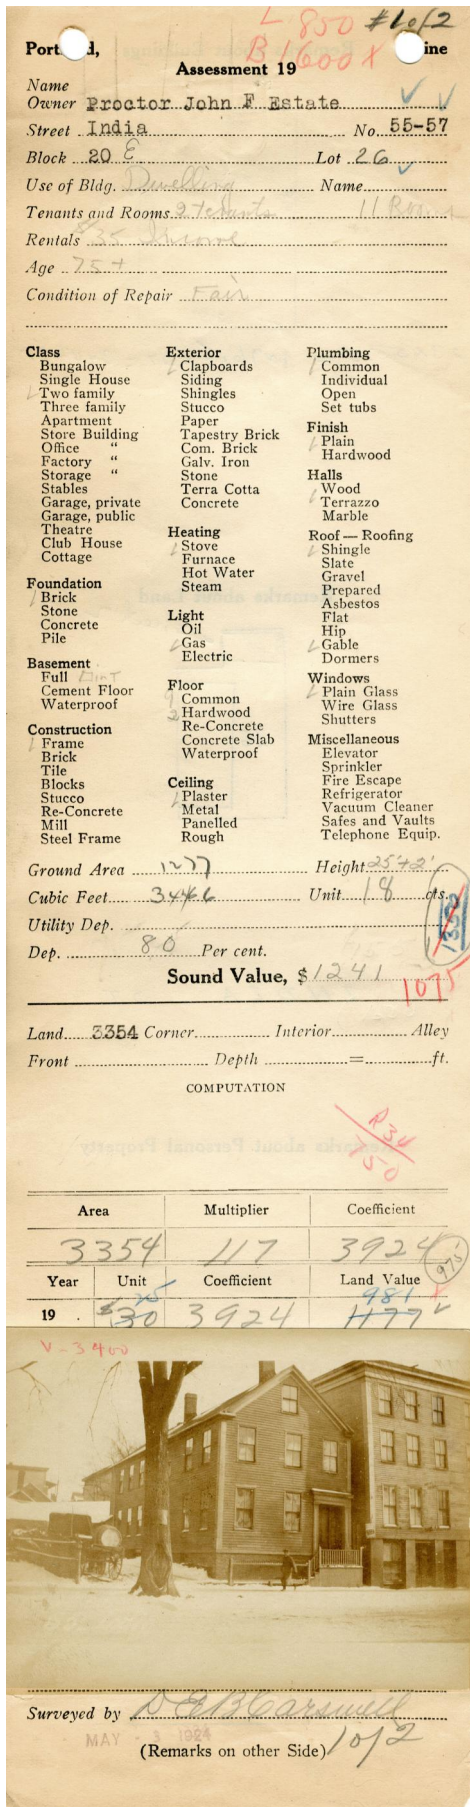 L 850 #1 of 2
B 1600 X
Port d, ine
Assessment 19
Name
Owner Proctor John F Estate
Street India No. 55-57
Block 20 E Lot 26
Use of Bldg. Dwelling Name
Tenants and Rooms 2 tenants 11 Rooms
Rentals $35
Age 75+
Condition of Repair Fair
Class
Bungalow
Single House
Two family
Three family
Apartment
Store Building
Office "
Factory "
Storage "
Stables
Garage, private
Garage, public
Theatre
Club House
Cottage
Foundation
Brick
Stone
Concrete
Pile
Basement
Full Dirt
Cement Floor
Waterproof
Construction
Frame
Brick
Tile
Blocks
Stucco
Re-Concrete
Mill
Steel Frame
Exterior
Clapboards
Siding
Shingles
Stucco
Paper
Tapestry Brick
Com. Brick
Galv. Iron
Stone
Terra Cotta
Concrete
Heating
Stove
Furnace
Hot Water
Steam
Light
Oil
Gas
Electric
Floor
Common
2 Hardwood
Re-Concrete
Concrete Slab
Waterproof
Ceiling
Plaster
Metal
Panelled
Rough
Plumbing
Common
Individual
Open
Set tubs
Finish
Plain
Hardwood
Halls
Wood
Terrazzo
Marble
Roof — Roofing
Shingle
Slate
Gravel
Prepared
Asbestos
Flat
Hip
Gable
Dormers
Windows
Plain Glass
Wire Glass
Shutters
Miscellaneous
Elevator
Sprinkler
Fire Escape
Refrigerator
Vacuum Cleaner
Safes and Vaults
Telephone Equip.
Ground Area 1277 Height 25'+2'
Cubic Feet Unit 18 cts.
Utility Dep.
Dep. 80 Per cent.
Sound Value, $1241
1075
Land 3354 Corner Interior Alley
Front Depth = ft.
COMPUTATION
R30
Area Multiplier Coefficient
3354 117 3924
975
Year Unit Coefficient Land Value
25 981 X
19 . $30 3924 1177
V-3400
Surveyed by D E B Carswell
MAY - 3 1924
(Remarks on other Side) 1 of 2